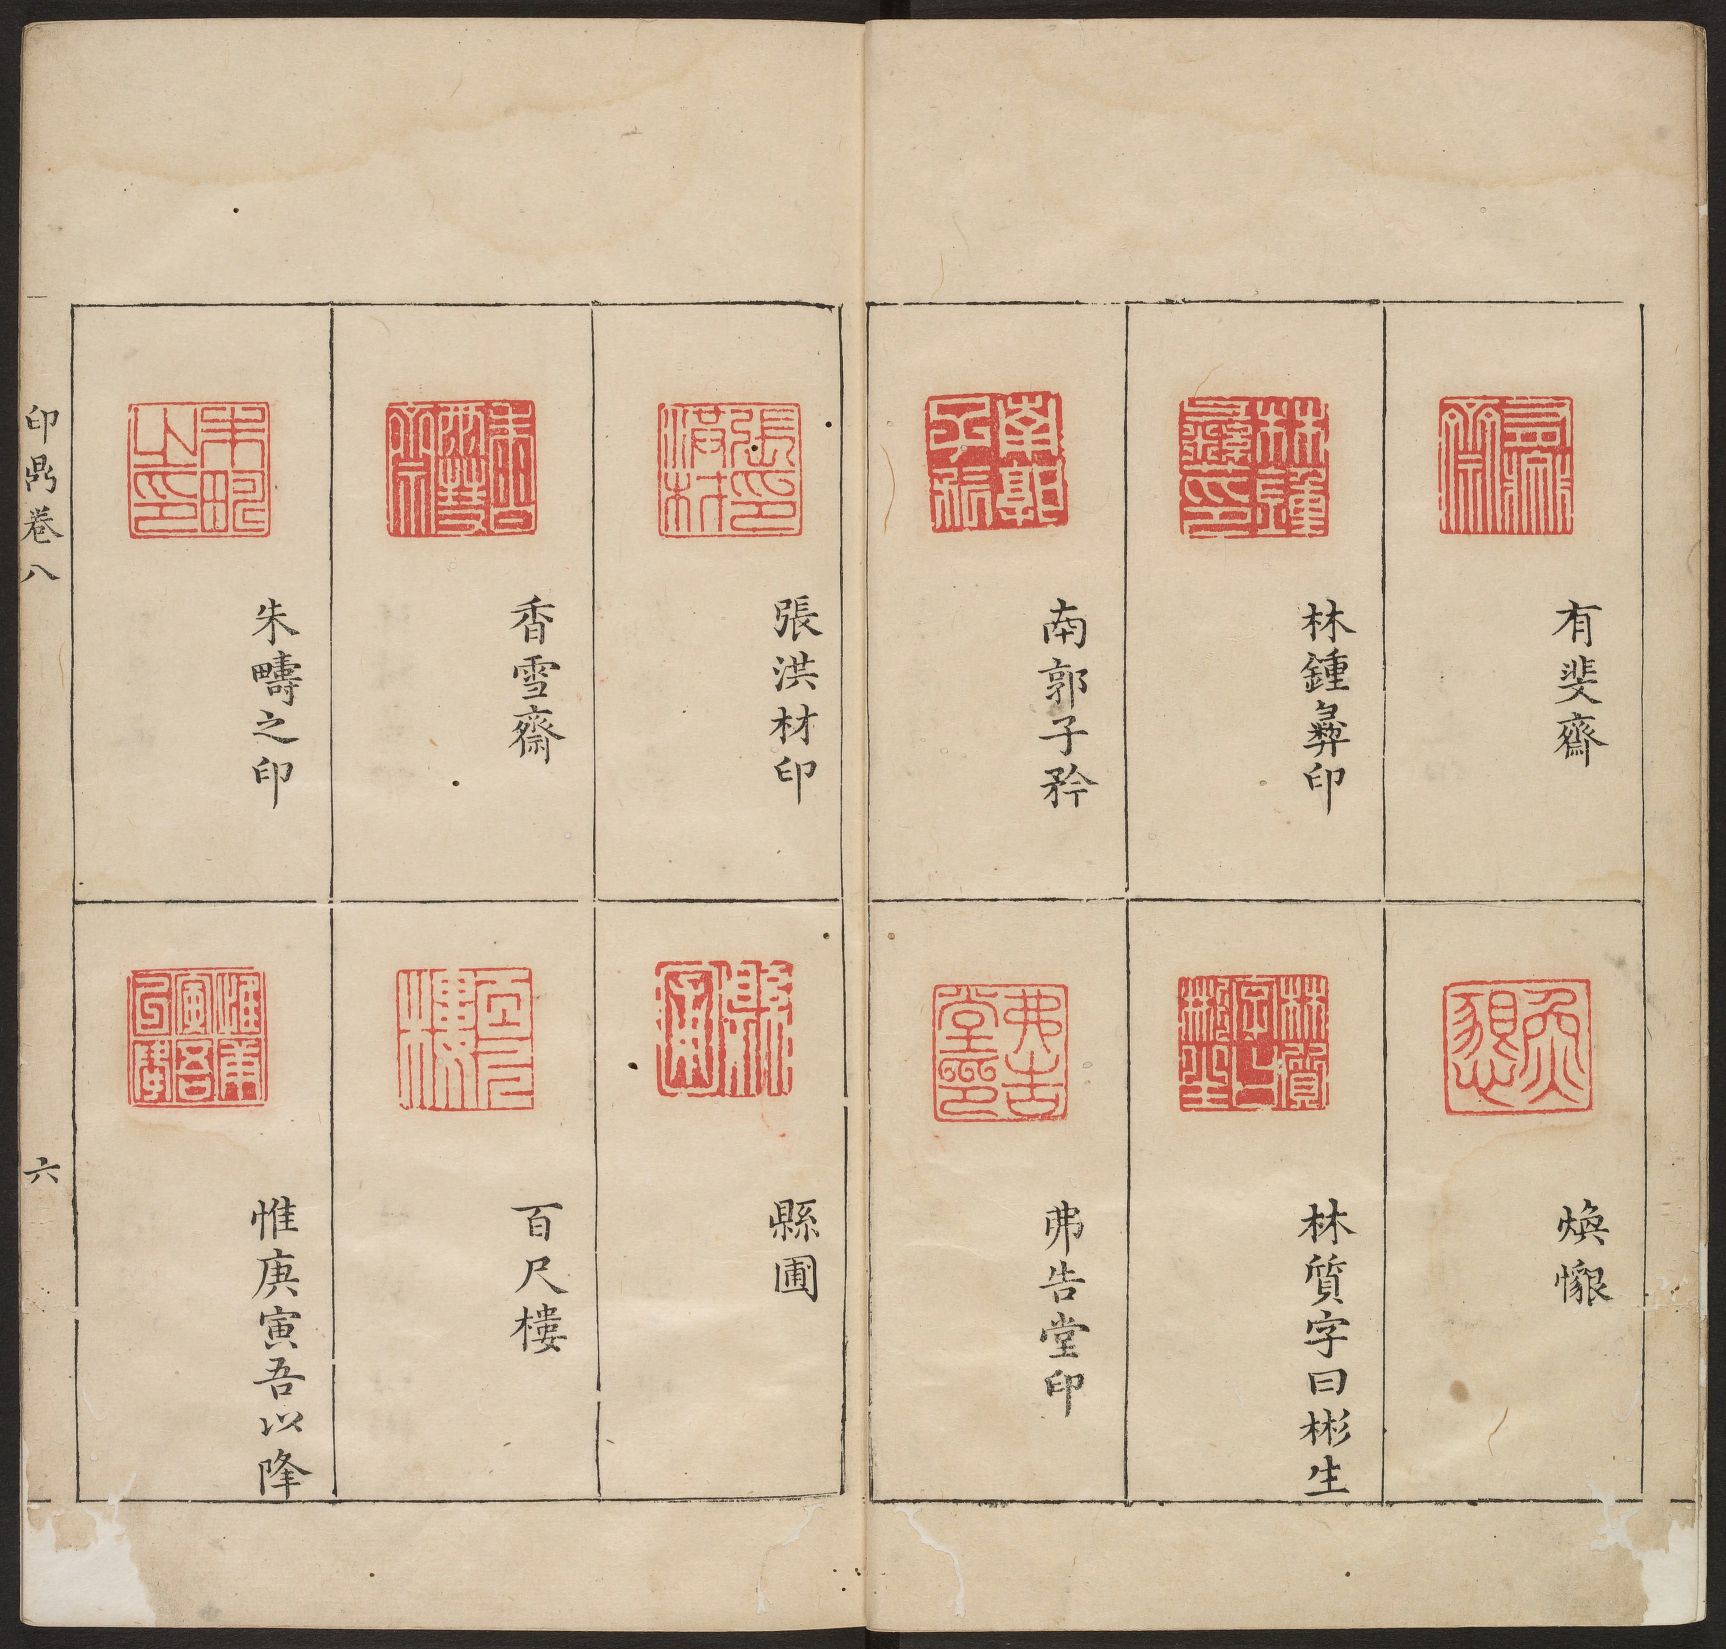 有斐齋
林鍾彞印
南郭子矜
煥懇
林質字曰彬生
弗告堂印
張洪材印
香雪齋
朱疇之印
縣圃
百尺樓
惟庚寅吾以降
印鼎卷八
六